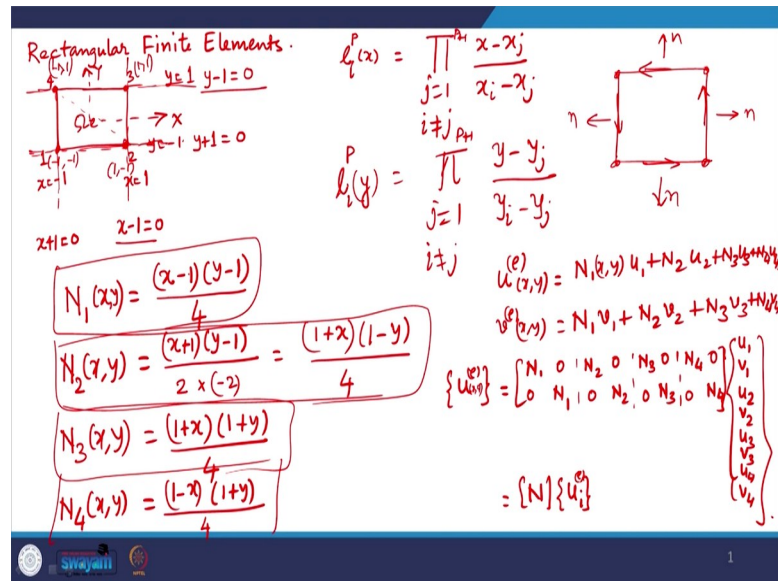 Rectangular Finite Elements.
4 (-1,1)
Y
3 (1,1)
y=1 y-1=0
Ωe
X
y=-1 y+1=0
1 (-1,-1)
(1,-1) 2
x=-1
x=1
x+1=0
x-1=0
N₁(x,y) = (x-1)(y-1) / 4
N₂(x,y) = (x+1)(y-1) / 2 × (-2) = (1+x)(1-y) / 4
N₃(x,y) = (1+x)(1+y) / 4
N₄(x,y) = (1-x)(1+y) / 4
lᵢᴾ(x) = ∏ P+1 j=1 i≠j (x-xⱼ) / (xᵢ-xⱼ)
lᵢᴾ(y) = ∏ P+1 j=1 i≠j (y-yⱼ) / (yᵢ-yⱼ)
n
n
n
n
u⁽ᵉ⁾(x,y) = N₁(x,y) u₁ + N₂ u₂ + N₃u₃ + N₄u₄
v⁽ᵉ⁾(x,y) = N₁v₁ + N₂v₂ + N₃v₃ + N₄v₄
N₁ 0 N₂ 0 N₃ 0 N₄ 0
0 N₁ 0 N₂ 0 N₃ 0 N₄
u₁
v₁
u₂
v₂
u₃
v₃
u₄
v₄
= [N]{uᵢ⁽ᵉ⁾}
swayam
NPTEL
1